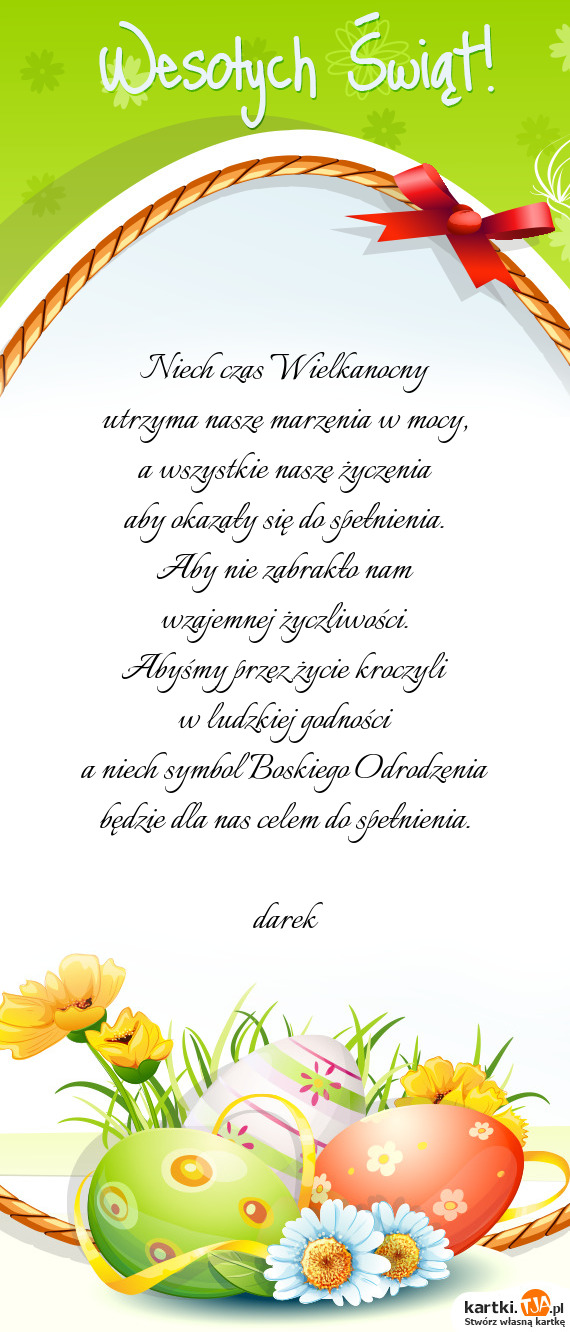 Wesołych Świąt!
Niech czas Wielkanocny
utrzyma naszę marzenia w mocy,
a wszystkie naszę życzenia
aby okazały się do spełnienia.
Aby nie zabrakło nam
wzajemnej życzliwości.
Abyśmy przez życie kroczyli
w ludzkiej godności
a niech symbol Boskiego Odrodzenia
będzie dla nas celem do spełnienia.
darek
kartki.TJA.pl
Stwórz własną kartkę